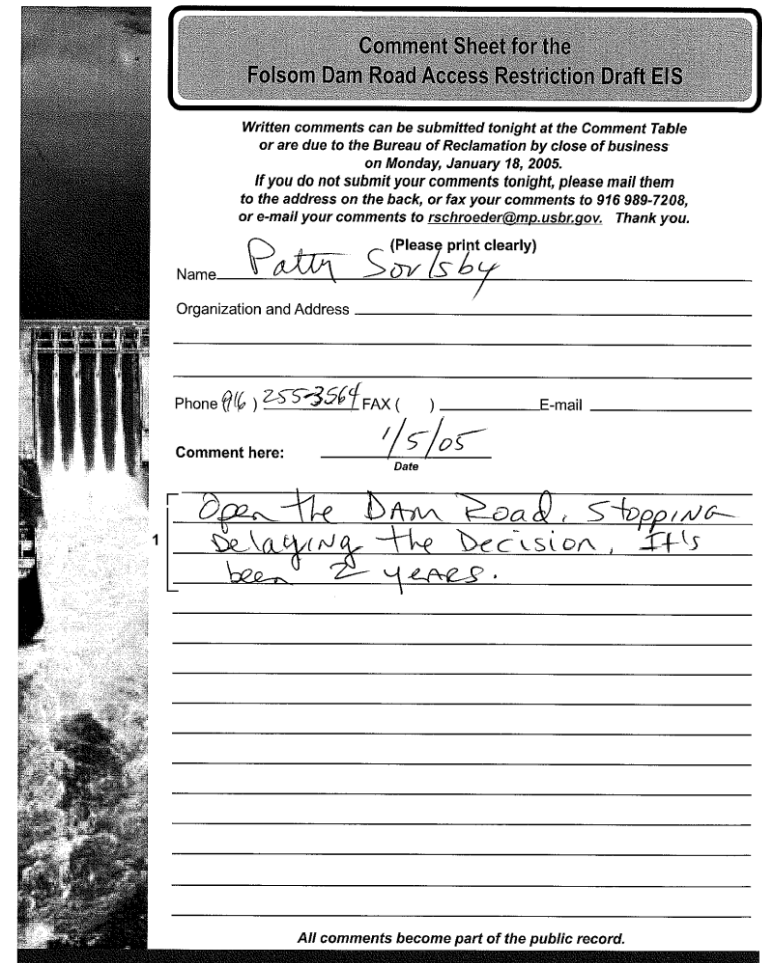 Comment Sheet for the
Folsom Dam Road Access Restriction Draft EIS
Written comments can be submitted tonight at the Comment Table
or are due to the Bureau of Reclamation by close of business
on Monday, January 18, 2005.
If you do not submit your comments tonight, please mail them
to the address on the back, or fax your comments to 916 989-7208,
or e-mail your comments to rschroeder@mp.usbr.gov. Thank you.
(Please print clearly)
Name Patty
Organization and Address
Phone (916) 255-3564 FAX ( ) E-mail
Comment here: 1/5/05
Date
Open the DAM Road. Stopping
1 Delaying the Decision. It's
been 2 years.
All comments become part of the public record.